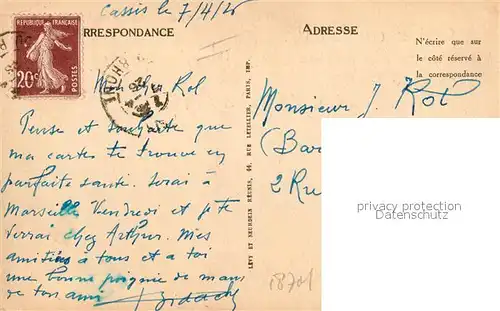 Cassis le 7/4/26
RÉPUBLIQUE FRANÇAISE
20c
POSTES
RRESPONDANCE
ADRESSE
N'écrire que sur
le côté réservé à
la correspondance
Mon cher Rol
Pense et souhaite que
ma cartes te trouve en
parfaite santé. Serai à
Marseille Vendredi et p te
verrai chez Arthur. Mes
amitiés à tous et a toi
une bonne poignée de mans
de ton ami
LÉVY ET NEURDEIN RÉUNIS, 44, RUE LETELLIER, PARIS, IMP.
Monsieur J. Rol
(Bar
2 Rue
privacy protection
Datenschutz
18701